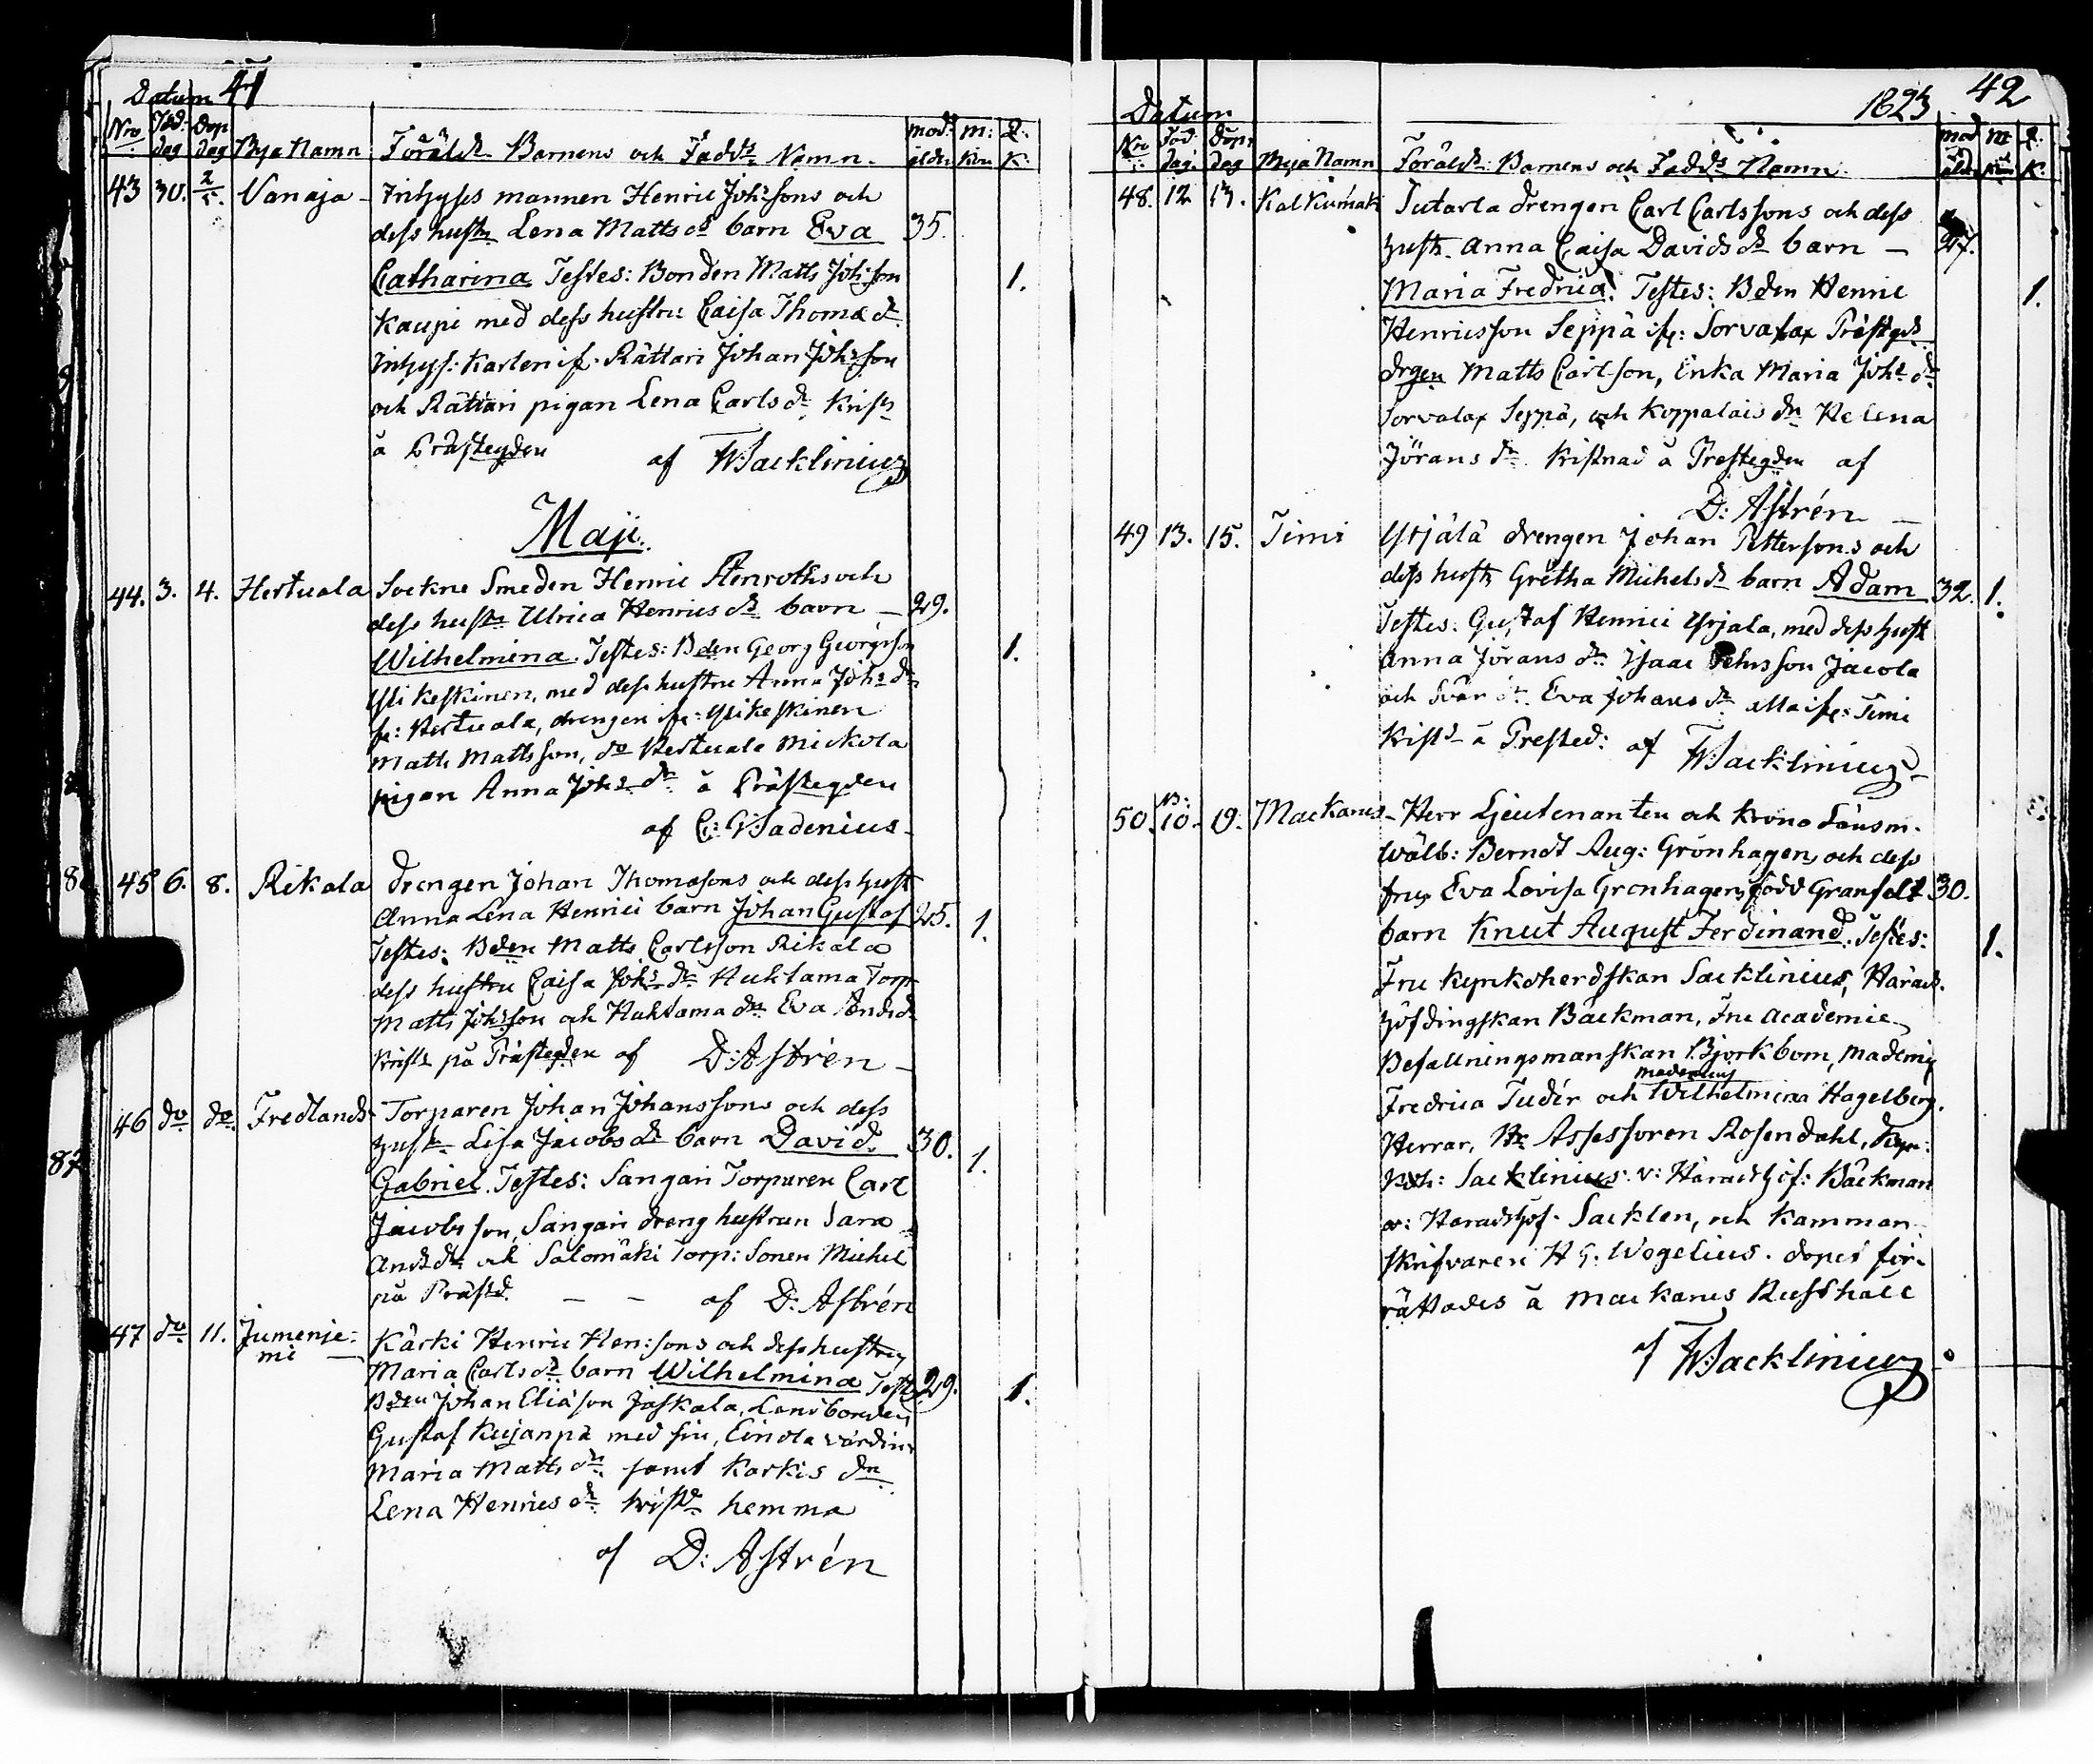 Datum 41
Nro Föd: dag Dop dag Bya Namn Föräld: Barnens och Fadd:s Namn. mod: ålder m: kön Q: K:
43 30. 2/5. Vanaja - Inhyses mannen Henric Joh:s sons och
dess hust: Lena Matts d:r barn Eva 35.
Catharina Testes: Bonden Matts Joh:s son 1.
Kaupi med dess hustru Caisa Thomæ d:r
Inhys: Karlen if: Rättari Johan Joh:s son
och Rättari pigan Lena Carls d:r Krist:
å Prästegden af W: Sacklinius
Maji.
44. 3. 4. Hertuala Sockne Smeden Henric Stenroths och
dess hust: Ulrica Henrics d:r barn - 29.
Wilhelmina. Testes: Bden Georg Georgsson 1.
Yli Keskinen, med dess hustru Anna Joh:s d:r
fr: Hertuala, drengen ifr: Yli Keskinen
Matts Mattsson, d:o Hertuala Mickola
pigan Anna Joh:s d:r å Prästegden
af C: G: Sadenius
45 6. 8. Rikala Drengen Johan Thomæsons och dess Hust
Anna Lena Henrici barn Johan Gustaf 25. 1.
Testes: Bden Matts Carlsson Rikala
dess hustru Caisa Joh:s d:r Huhtama Torp
Matts Joh:s son och Huhtama d:n Eva And:s d:r
Krist: på Prästegden af D: Astrén
46 do do. Fredlands Torparen Johan Johanssons och dess
Hust: Lisa Jacobs d:r barn David 30. 1.
Gabriel. Testes: Sangari Torparen Carl
Jacobsson, Sangari dreng hustrun Sara
And:s d:r och Salomäki Torp: Sonen Michel
på Präst:d. - - af D: Astrén
47 do 11. Jumenje- Kärki Henric Hen:sons och dess hustru
mi - Maria Carls d:r barn Wilhelmina Test: 29. 1.
Bden Johan Eliæson Jaskala, Landbonden
Gustaf Kujanpä med sin, Einola värdinn
Maria Matts d:r samt Karkis d:n
Lena Henrics d:r krist:d hemma
af D: Astrén
Datum 1823 42
Nro Föd: dag. Dop: dag Bya Namn Föräld: Barnens och Fadd:s Namn. mod: ålder m: kön q: K:
48. 12 13. Kalkumäki Tutarla drengen Carl Carlssons och dess
Hust: Anna Caisa Davids d:r barn - 27.
Maria Fredrica. Testes: Bden Henric 1.
Henricsson Seppä ifr: Sorvalax Prästg:ds
drgen Matts Carlsson, Erika Maria Joh:s d:r
Sorvalax Seppä, och Koppalais d:n Helena
Jörans d:r Kristnad å Prestegden af
D: Astrén -
49 13. 15. Timi Yrjälä drengen Johan Pettersons och
dess hust: Gretha Michels d:r barn Adam 32. 1.
Testes: Gustaf Henrici Yrjala, med dess Hust
Anna Jörans d:r Isaac Jehnsson Jacola
och Svär d:r Eva Johans d:r alla ifr: Timi
Krist:d å Prested: af W: Sacklinius
50. 10. 19. Mackarus - Herr Lieutenanten och Krono Länsm.
Wälb: Berndt Aug: Grönhagen, och dess
fru Eva Lovisa Grönhagen, född Granfelt 30.
barn Knut August Ferdinand. Testes: 1.
Fru Kyrkoherdskan Sacklinius, Härads-
höfdingskan Bäckman, Fru Academie
Befallningsmanskan Björkbom, Madems
Fredrica Tudér och mademois Wilhelmina Hagelberg.
Herrar, Hr Assessoren Rosendahl, Kyr-
koh: Sacklinius. v: Häradshöf: Bäckman
v: Häradshöf. Sacklen, och Kamman-
skrifvaren H G. Wogelius. dopet för-
rättades å Mackarus Rusthåll
af W: Sacklinius